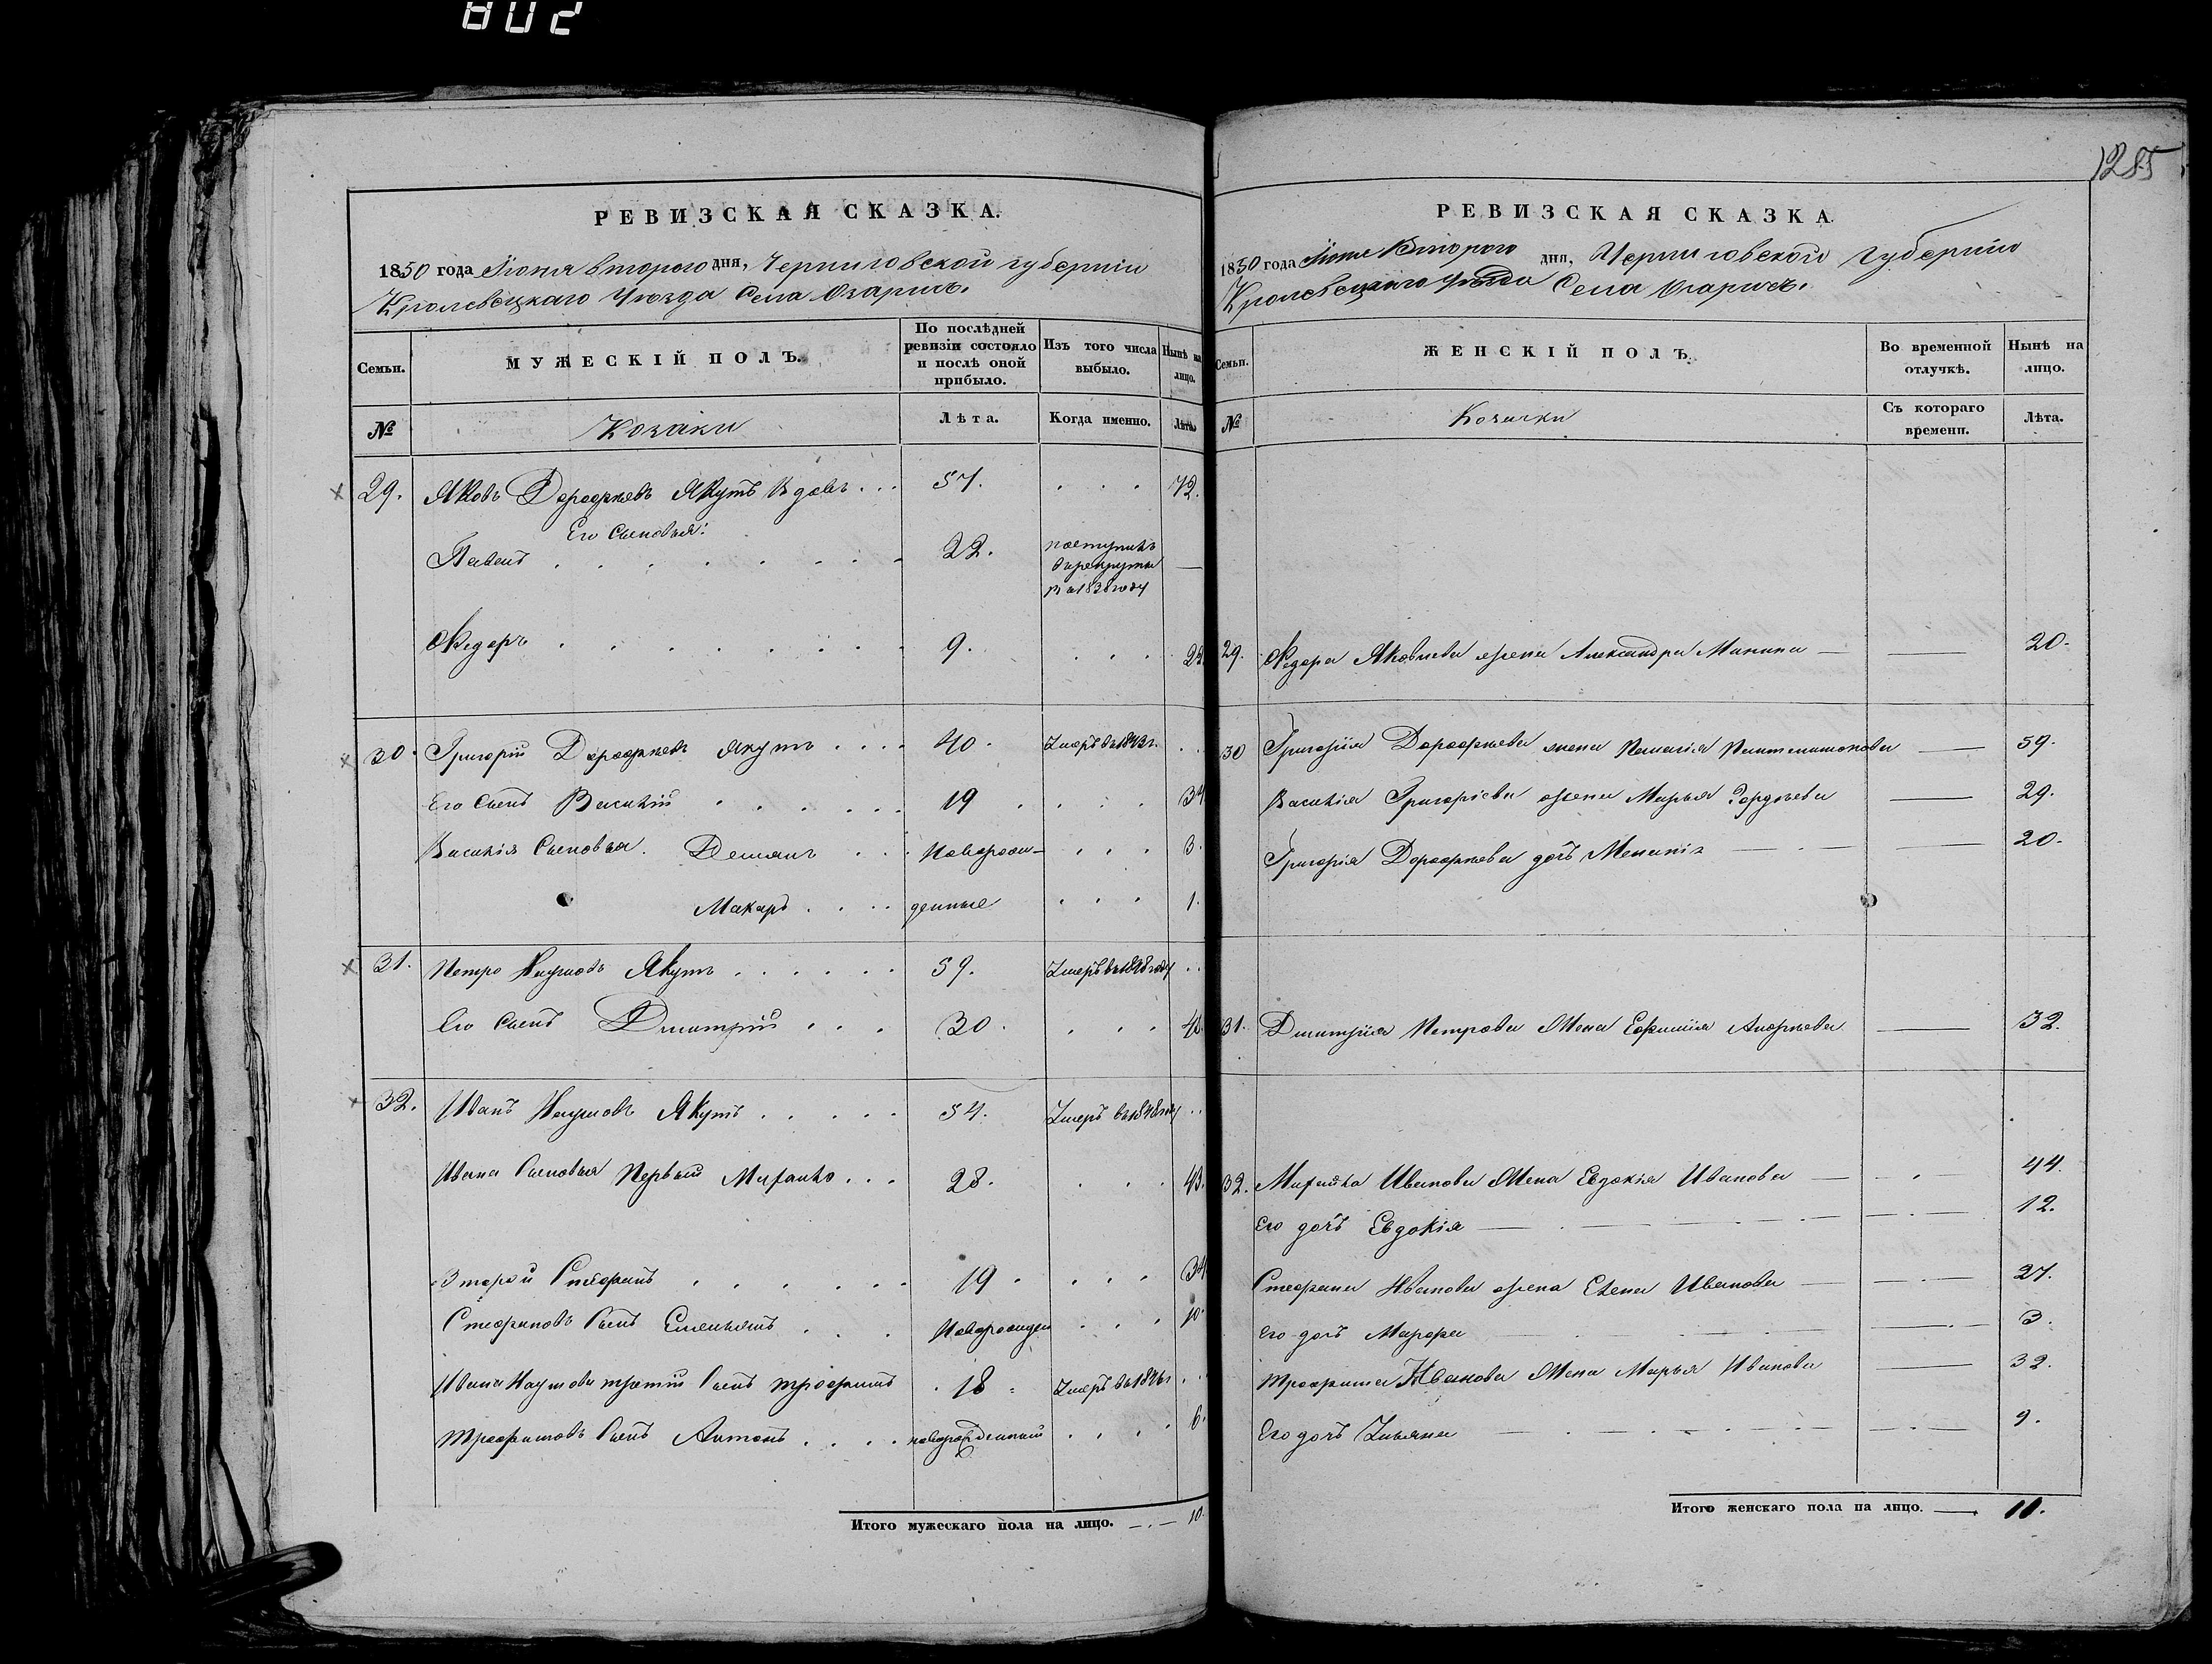 802
1285
РЕВИЗСКАЯ СКАЗКА.
1850 года Іюня второго дня, Черниговской губерніи
Кролевецкаго Уѣзда Села Озаричъ.
Семьи.
МУЖЕСКІЙ ПОЛЪ.
По послѣдней ревизіи состояло и послѣ оной прибыло.
Изъ того числа выбыло.
Нынѣ на лицо.
№
Козаки
Лѣта.
Когда именно.
Лѣта.
29. Яковъ Дорофѣевъ Якутъ Вдовъ . . . 57. . . . 72.
Его Сыновья:
Павелъ . . . . . . . . 22. поступилъ в рекруты въ 1838 году —
Федоръ . . . . . . . . 9. . . . 24
30. Григорій Дорофѣевъ Якутъ . . . . 40. Умеръ въ 1843 г. . .
Его Сынъ Василій . . . . . . 19 . . . . 34
Василія Сыновья. Демьянъ . . . Новорож- . . . 3.
Макаръ . . . . денные . . . 1.
31. Петро Наумовъ Якутъ . . . . . . 59. Умеръ въ 1848 году . .
Его Сынъ Дмитрій . . . 30. . . .
32. Иванъ Наумовъ Якутъ . . . . . 54. Умеръ въ 1848 году . .
Ивана Сыновья Первый Михайло . . . 28. . . . 43.
Второй Стефанъ . . . . . . 19 . . . . 34
Стефановъ Сынъ Емельянъ . . . Новорожден . . . 10.
Ивана Наумова третій Сынъ Трофимъ . 18 Умеръ въ 1846 г . .
Трофимовъ Сынъ Антонъ . . . . новорожденный . . . . 6.
Итого мужескаго пола на лицо. — . — 10.
РЕВИЗСКАЯ СКАЗКА.
1850 года Іюня Второго дня, Черниговской Губерніи
Кролевецкаго Уѣзда Села Озаричъ.
Семьи.
ЖЕНСКІЙ ПОЛЪ.
Во временной отлучкѣ.
Нынѣ на лицо.
№
Козачки
Съ котораго времени.
Лѣта.
29. Федора Яковлева жена Александра Минина — — 20.
30 Григорія Дорофѣева жена Пелагія Пантелимонова — 59.
Василія Григоріева жена Марья Гордѣева — 29.
Григорія Дорофѣева дочь Меланія — . — — 20.
31. Дмитрія Петрова Жена Ефимія Андрѣева — 32.
32. Михайла Иванова Жена Евдокія Иванова — — . — 44.
Его дочь Евдокія — . — . — — . — 12.
Стефана Иванова жена Елена Иванова — — . — 27.
Его дочь Марфа — . — . — — . — 3.
Трофима Иванова Жена Марья Иванова — 32.
Его дочь Ульяна — . — . — . — — . — 9.
Итого женскаго пола на лицо. — 10.